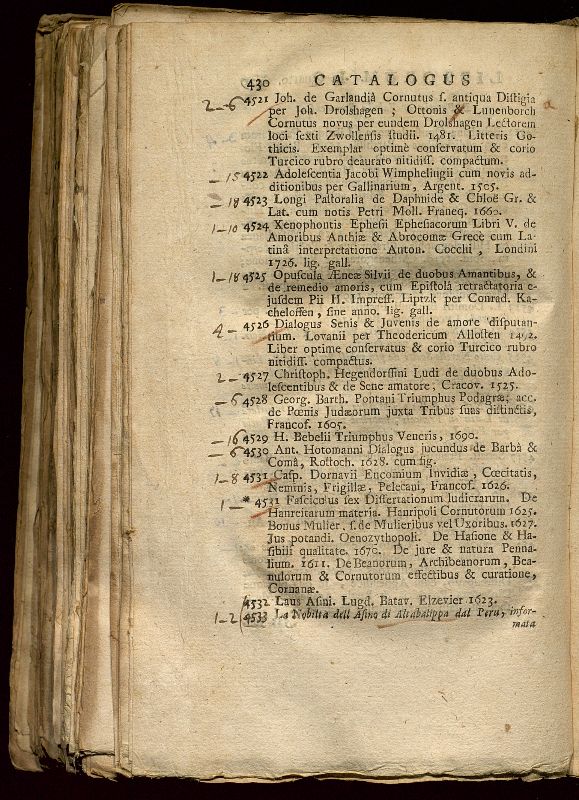 430 CATALOGUS
2-6 4521 Joh. de Garlandiâ Cornutus ſ. antiqua Diſtigia
per Joh. Drolshagen ; Ottonis & Lunenborch
Cornutus novus per eundem Drolshagen Lectorem
loci ſexti Zwollenſis ſtudii. 1481. Litteris Go-
thicis. Exemplar optimè conſervatum & corio
Turcico rubro deaurato nitidiſſ. compactum.
-15 4522 Adoleſcentia Jacobi Wimphelingii cum novis ad-
ditionibus per Gallinarium, Argent. 1505.
-18 4523 Longi Paſtoralia de Daphnide & Chloë Gr. &
Lat. cum notis Petri Moll. Franeq. 1660.
1-10 4524 Xenophontis Epheſii Epheſiacorum Libri V. de
Amoribus Anthiæ & Abrocomæ Grecè cum La-
tinâ interpretatione Anton. Cocchi , Londini
1726. lig. gall.
1-18 4525 Opuſcula Æneæ Silvii de duobus Amantibus, &
de remedio amoris, cum Epiſtolâ retractatoria e-
juſdem Pii H. Impreſſ. Liptzk per Conrad. Ka-
cheloffen , ſine anno. lig. gall.
4- 4526 Dialogus Senis & Juvenis de amore diſputan-
tium. Lovanii per Theodericum Alloſten 1492.
Liber optime conſervatus & corio Turcico rubro
nitidiſſ. compactus.
2- 4527 Chriſtoph. Hegendorffini Ludi de duobus Ado-
leſcentibus & de Sene amatore, Cracov. 1525.
-6 4528 Georg. Barth. Pontani Triumphus Podagræ; acc.
de Pœnis Judæorum juxta Tribus ſuas diſtinctis,
Francof. 1605.
-16 4529 H. Bebelii Triumphus Veneris, 1690.
-6 4530 Ant. Hotomanni Dialogus jucundus de Barbâ &
Comâ, Roſtoch. 1628. cum fig.
1-8 4531 Caſp. Dornavii Encomium Invidiæ, Cœcitatis,
Neminis, Frigillæ, Pelecani, Francof. 1626.
1- * 4531 Faſciculus ſex Diſſertationum ludicrarum. De
Hanreitarum materia. Hanripoli Cornutorum 1625.
Bonus Mulier, ſ. de Mulieribus vel Uxoribus. 1627.
Jus potandi. Oenozythopoli. De Haſione & Ha-
ſibili qualitate. 1670. De jure & natura Penna-
lium. 1611. De Beanorum, Archibeanorum, Bea-
nulorum & Cornutorum effectibus & curatione,
Cornanæ.
4532 Laus Aſini. Lugd. Batav. Elzevier 1623.
1-2 4533 La Nobilta dell Aſino di Attabalippa dal Peru, infor-
mata